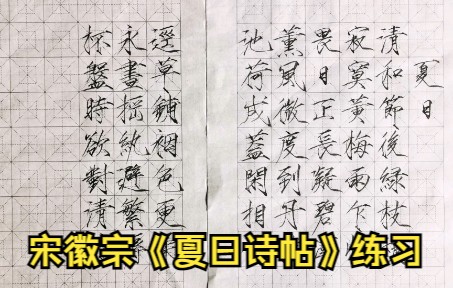 夏日
清和節後綠枝
寂寞黃梅雨乍
畏日正長凝碧
薰風微度到丹
池荷成蓋閑相
逕草鋪裀色更
永晝搖紈避繁
杯盤時欲對清
宋徽宗《夏日诗帖》练习